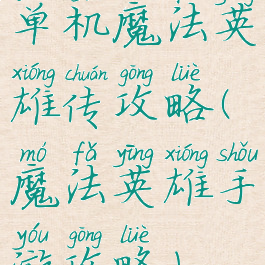 单机魔法英
xióng chuán gōng lüè
雄传攻略(
mó fǎ yīng xióng shǒu
魔法英雄手
yóu gōng lüè
游攻略)